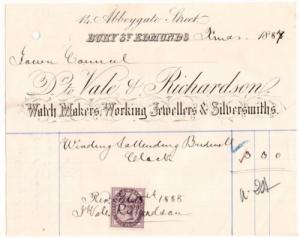 12, Abbeygate Street.
BURY ST EDMUNDS Xmas 1887
Town Council
Dr. To Vale & Richardson,
Watch Makers, Working Jewellers & Silversmiths.
Winding & attending Bridewell
Clock
1888
Vale Richardson